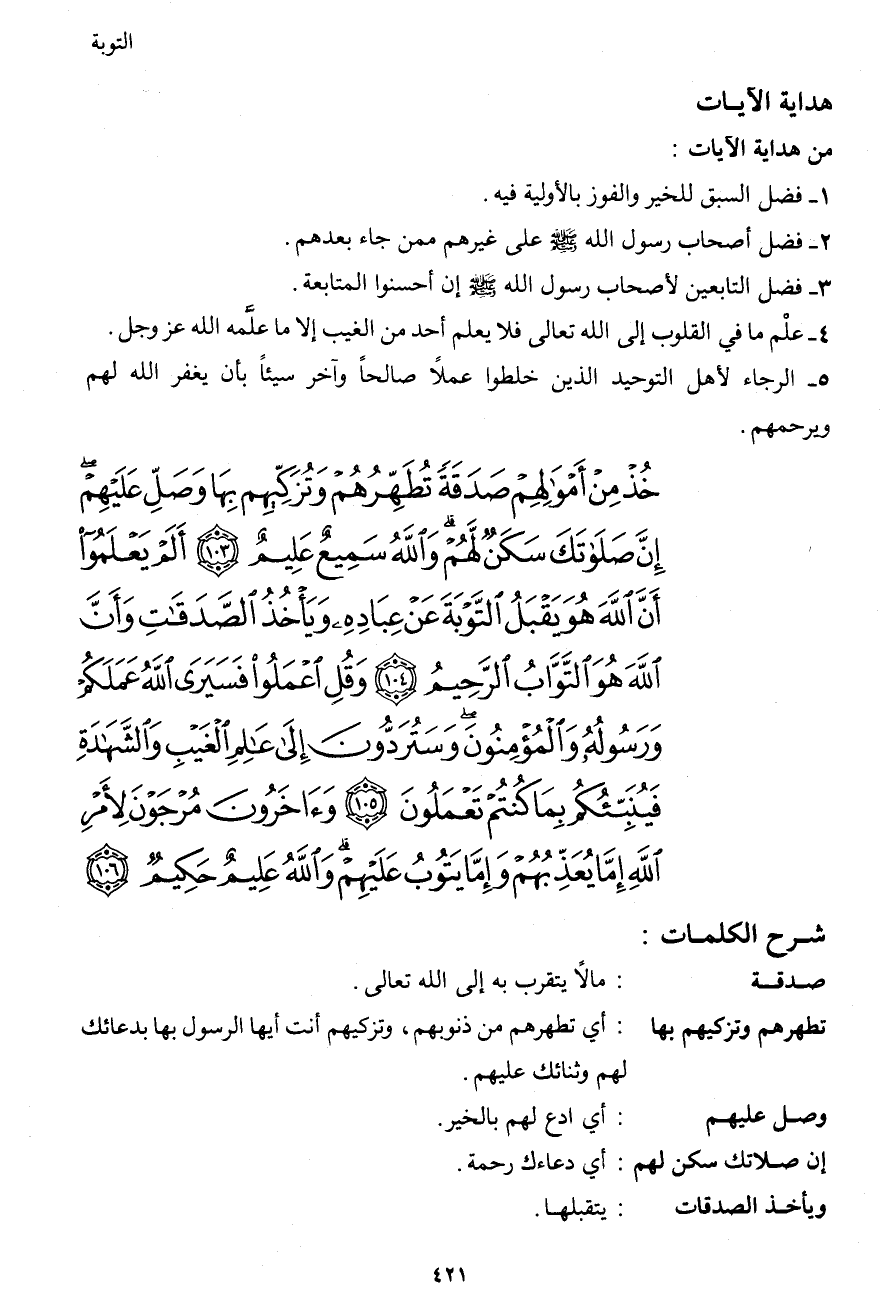 التوبة
هداية الآيـات
من هداية الآيات :
١ـ فضل السبق للخير والفوز بالأولية فيه .
٢ـ فضل أصحاب رسول الله ﷺ على غيرهم ممن جاء بعدهم .
٣ـ فضل التابعين لأصحاب رسول الله ﷺ إن أحسنوا المتابعة .
٤ـ علْم ما في القلوب إلى الله تعالى فلا يعلم أحد من الغيب إلا ما علَّمه الله عز وجل .
٥ـ الرجاء لأهل التوحيد الذين خلطوا عملاً صالحاً وآخر سيئاً بأن يغفر الله لهم
ويرحمهم .
خُذْ مِنْ أَمْوَٰلِهِمْ صَدَقَةً تُطَهِّرُهُمْ وَتُزَكِّيهِم بِهَا وَصَلِّ عَلَيْهِمْ ۖ
إِنَّ صَلَوٰتَكَ سَكَنٌ لَّهُمْ ۗ وَٱللَّهُ سَمِيعٌ عَلِيمٌ ۝١٠٣ أَلَمْ يَعْلَمُوٓا۟
أَنَّ ٱللَّهَ هُوَ يَقْبَلُ ٱلتَّوْبَةَ عَنْ عِبَادِهِۦ وَيَأْخُذُ ٱلصَّدَقَٰتِ وَأَنَّ
ٱللَّهَ هُوَ ٱلتَّوَّابُ ٱلرَّحِيمُ ۝١٠٤ وَقُلِ ٱعْمَلُوا۟ فَسَيَرَى ٱللَّهُ عَمَلَكُمْ
وَرَسُولُهُۥ وَٱلْمُؤْمِنُونَ ۖ وَسَتُرَدُّونَ إِلَىٰ عَٰلِمِ ٱلْغَيْبِ وَٱلشَّهَٰدَةِ
فَيُنَبِّئُكُم بِمَا كُنتُمْ تَعْمَلُونَ ۝١٠٥ وَءَاخَرُونَ مُرْجَوْنَ لِأَمْرِ
ٱللَّهِ إِمَّا يُعَذِّبُهُمْ وَإِمَّا يَتُوبُ عَلَيْهِمْ ۗ وَٱللَّهُ عَلِيمٌ حَكِيمٌ ۝١٠٦
شـرح الكلمـات :
صـدقـة : مالاً يتقرب به إلى الله تعالى .
تطهرهم وتزكيهم بها : أي تطهرهم من ذنوبهم ، وتزكيهم أنت أيها الرسول بها بدعائك
لهم وثنائك عليهم .
وصـل عليهـم : أي ادع لهم بالخير .
إن صـلاتك سكن لهم : أي دعاءك رحمة .
ويأخـذ الصدقات : يتقبلهـا .
٤٢١